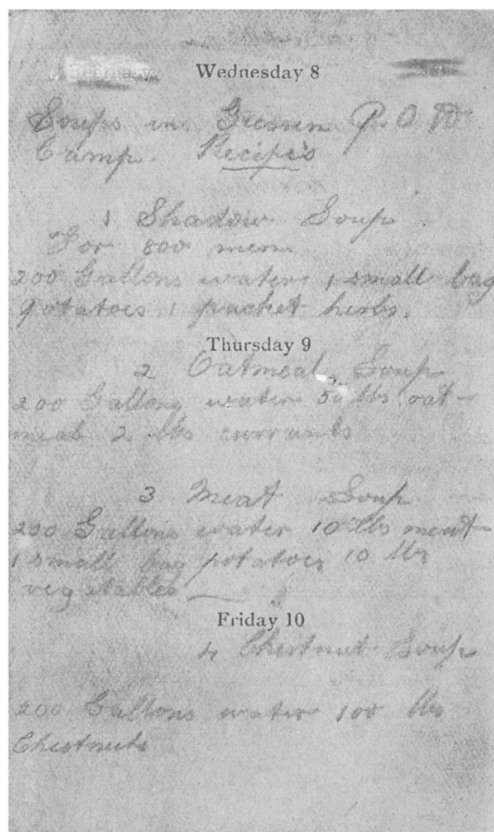 February
Wednesday 8
Soups in Giessen P.O.W
Camp. Recipes
1 Shadow Soup.
For 800 men
200 Gallons water 1 small bag
potatoes 1 packet herbs.
Thursday 9
2 Oatmeal Soup
200 Gallons water 50 lbs oat-
meal 2 lbs currants
3 Meat Soup
200 Gallons water 10 lbs meat
1 small bag potatoes 10 lbs
vegetables
Friday 10
4 Chestnut Soup
200 Gallons water 100 lbs
Chestnuts